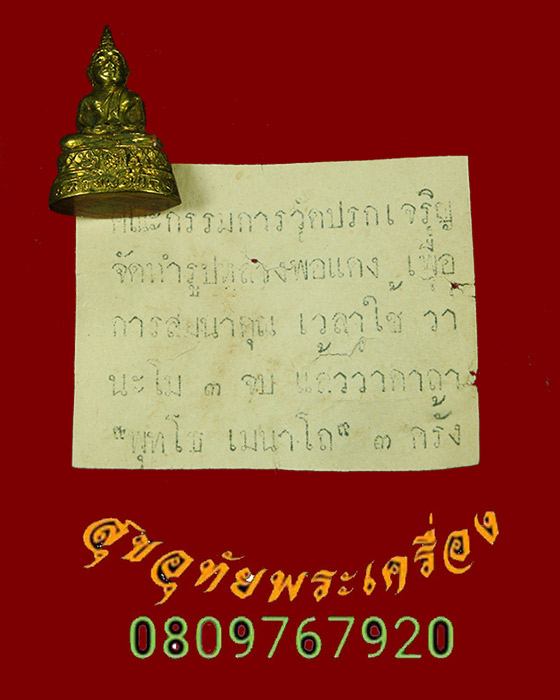 คณะกรรมการวัดปรกเจริญ
จัดทำรูปหลวงพ่อแดง เพื่อ
การสมนาคุณ เวลาใช้ ว่า
นะโม ๓ จบ แล้วว่าคาถา
"พุทโธ เมนาโถ" ๓ ครั้ง
สุขอุทัยพระเครื่อง
0809767920